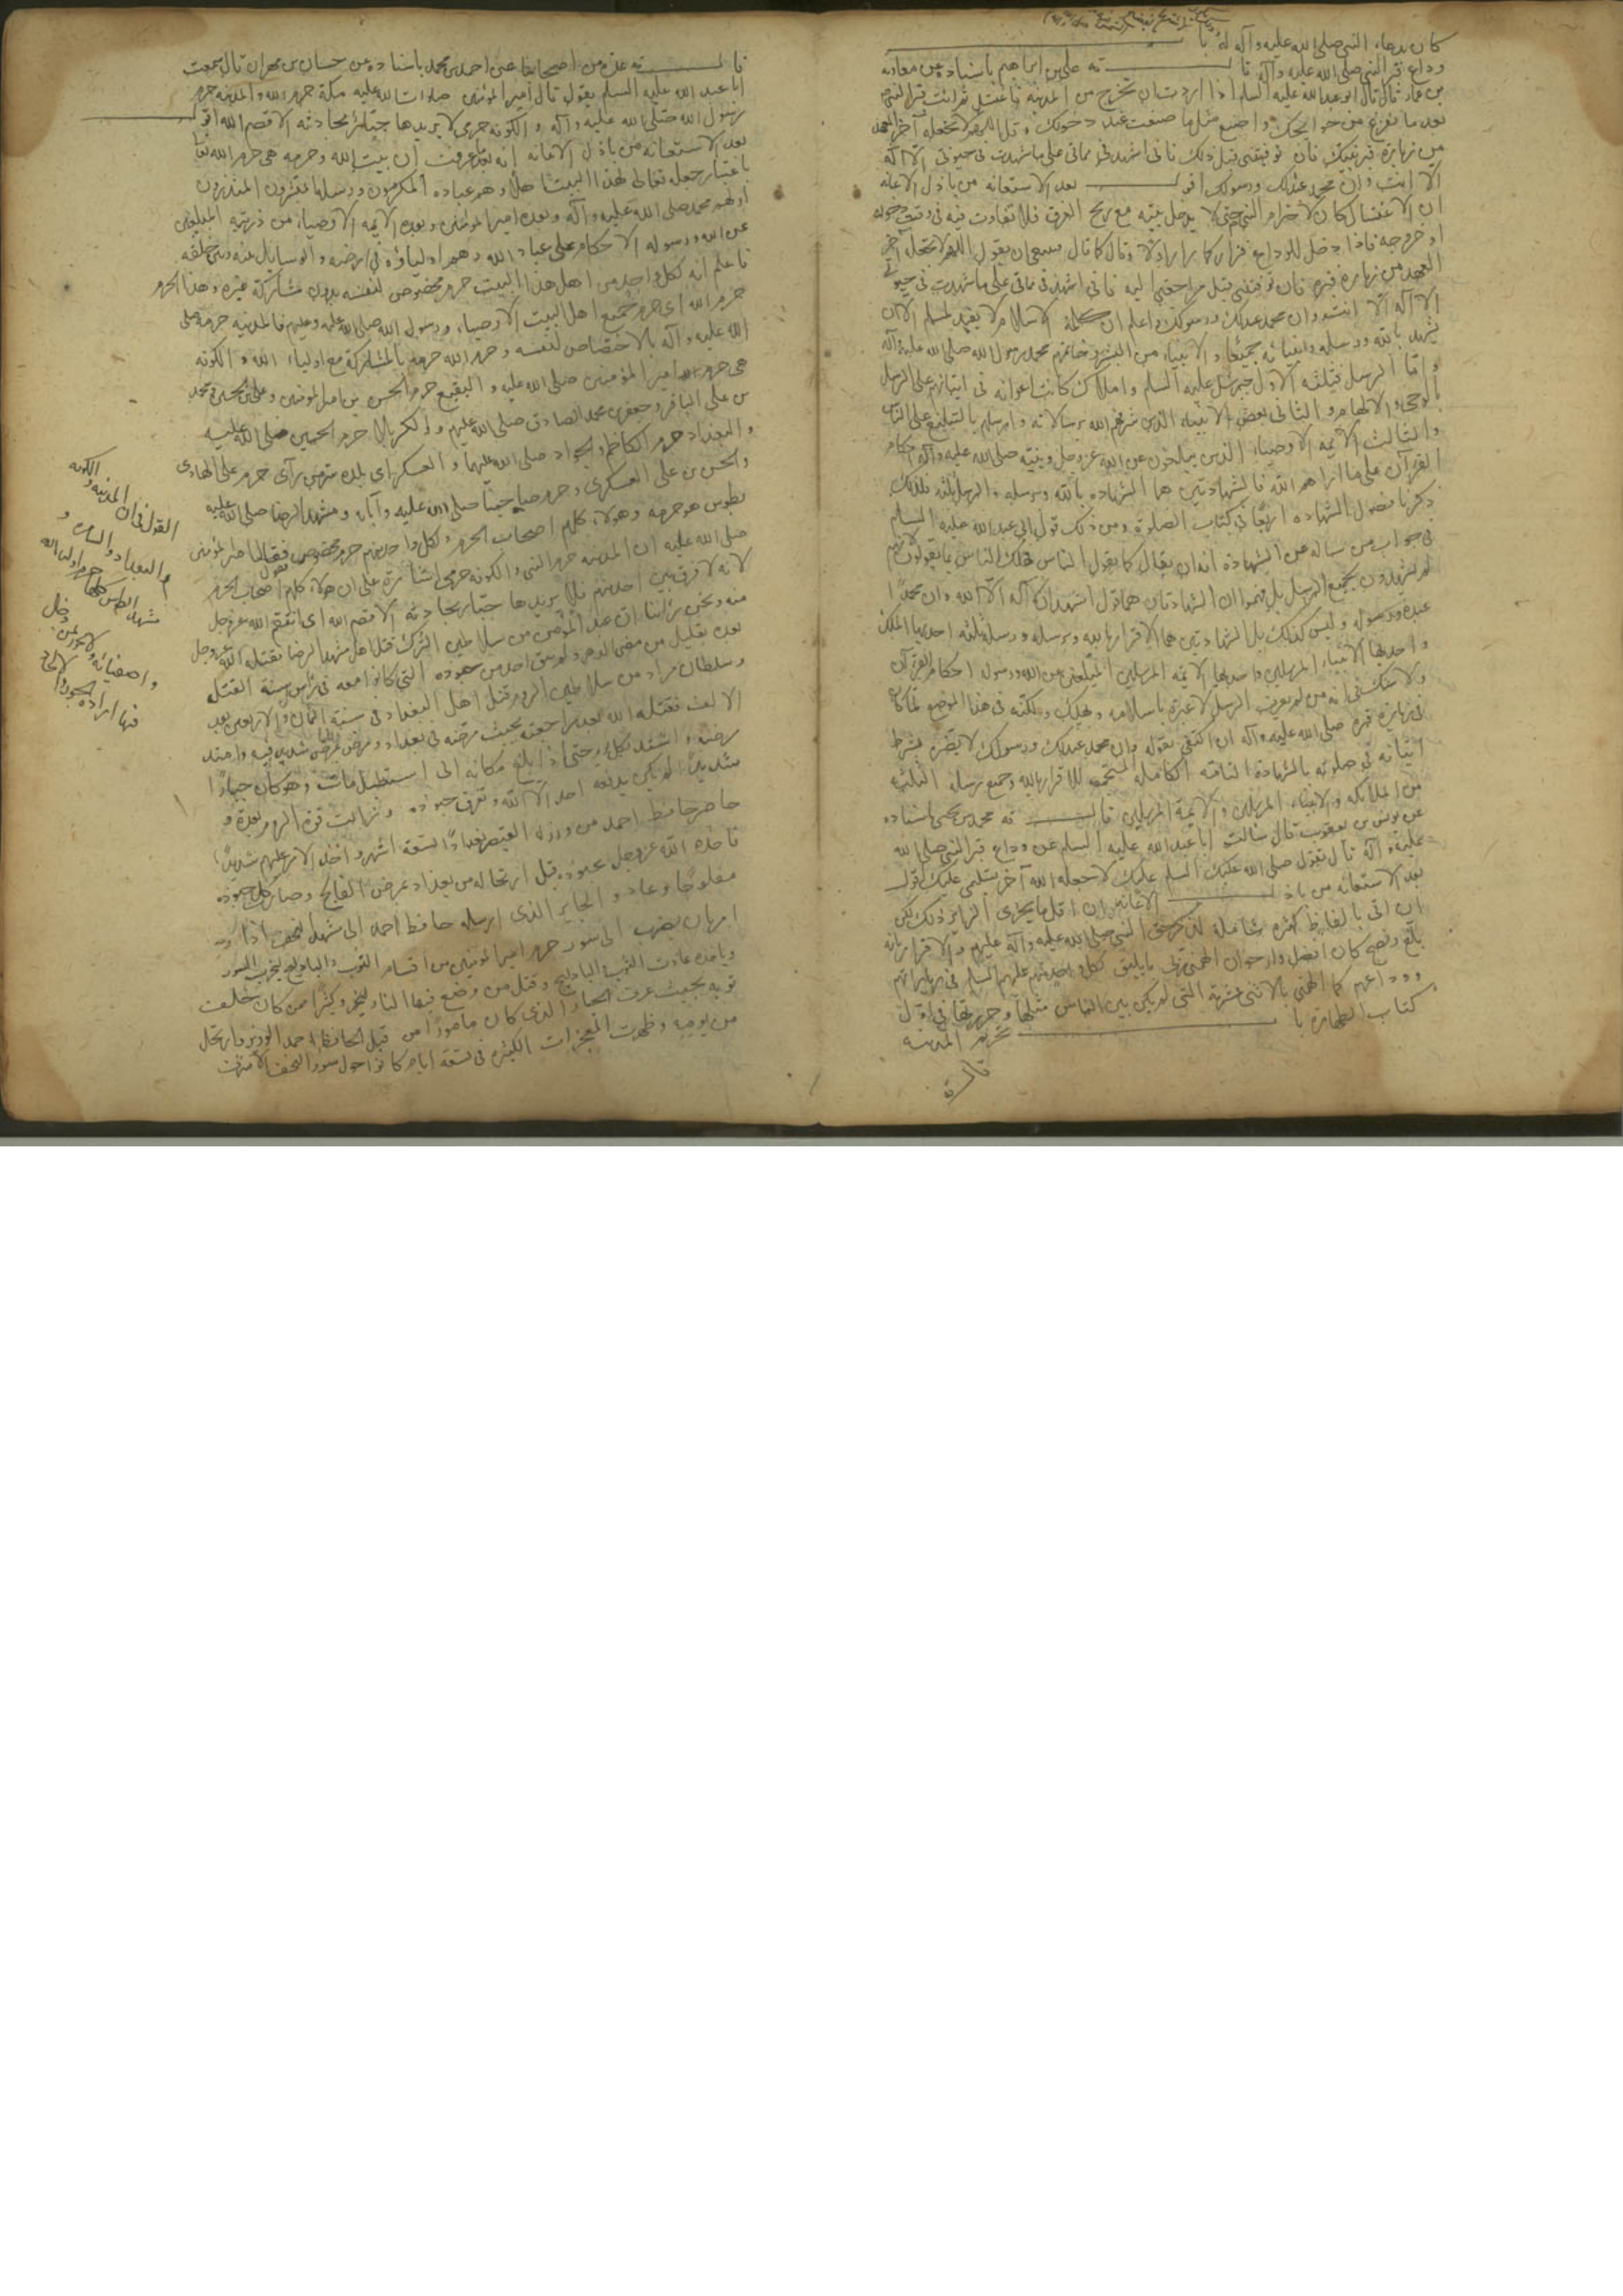 كان بدعاء النبي صلى الله عليه وآله له با
وداع قبر النبي صلى الله عليه وآله قا ل ته علي بن ابراهيم باسناده عن معاويه
بن عمار قال قال ابو عبد الله عليه السلم اذا اردت ان تخرج من المدينه فاغتسل ثم ائت قبر النبي ص
بعد ما تفرغ من حوايجك واصنع مثل ما صنعت عند دخولك وقل اللهم لا تجعله آخر العهد
من زيارة قبر نبيك فان توفيتني قبل ذلك فاني اشهد في مماتي على ما شهدت في حيوتي الا اله
الا انت وان محمد عبدك ورسولك اقو ل بعد الاستعانه من باذل الاعانه
ان الاغتسال كان لاحترام النبي حتى لا يدخل بيته مع ريح العرق فلا تفاوت فيه في وقت دخوله
او خروجه فاذا دخل للوداع فزار كما زار اولا وقال كما قال ان يقول اللهم لا تجعل آخر
العهد من زيارة قبره فان توفيتني قبل مراجعتي اليه فاني اشهد في مماتي على ما شهدت في حيوتي
الا اله الا انت وان محمد عبدك ورسولك واعلم ان كلمة الاسلام لا يفيد لمسلم الا ان
يشهد بالله ورسله وانبيائه جميعا والانبياء من البشر وخاتمهم محمد رسول الله صلى الله عليه وآله
واما الرسل فثلثة الاول جبرئيل عليه السلم واملاك كانت اعوانه في اتيانهم على الرسل
بالوحي والالهام والثاني بعض الانبياء الذين شرفهم الله برسالاته وامرسلهم بالتبليغ على الناس
والثالث الائمه الاوصياء الذين يبلغون عن الله عز وجل ونبيه صلى الله عليه وآله احكام
القرآن على ما اراهم الله فالشهادتين هما الشهاده بالله وبرسله والرسل ثلثه فلذلك
ذكرنا فصول الشهاده اربعا في كتاب الصلوة ومن ذلك قول ابي عبد الله عليه السلم
في جواب من ساله عن الشهادة انه ان يقال كما يقول الناس هلك الناس بما يقولون لانهم
لم يشهدون بجميع الرسل بل زعموا ان الشهادتان هما قول اشهد ان لا اله الا الله وان محمدا
عبده ورسوله وليس كذلك بل الشهادتين هما الاقرار بالله وبرسله ورسله ثلثه احديها الملك
واحديها الانبياء المرسلين واحديها الائمه المرسلين المبلغين عن الله ورسوله احكام القرآن
ولا شك في انه من لم يعرف الرسل لا عبرة باسلامه ويهلك ولكنه في هذا الموضع لما كان
في زيارة قبره صلى الله عليه وآله ان اكتفى بقوله وان محمد عبدك ورسولك لا يضره بشرط
اتيانه في صلوته بالشهادة التامه الكامله المتجمعه للاقرار بالله وجميع رسله الثلثه
من الملائكه والانبياء المرسلين والائمة المرسلين قا ل ته محمد بن يحيى باسناده
عن يونس بن يعقوب قال سالت ابا عبد الله عليه السلم عن وداع قبر النبي صلى الله
عليه وآله قال تقول صلى الله عليك السلم عليك لا جعله الله آخر تسليمي عليك اقول
بعد الاستعانه من باذ ل الاعانه ان اقل ما يجزى الزاير ذلك لكن
ان اتى بالفاظ كثيره شاملة لحق النبي صلى الله عليه وآله عليهم والاقرار بانه
بلغ ونصح كان افضل وارجو ان الهمني ربي ما يليق لكل واحد منهم عليهم السلم في زياراتهم
ووداعهم كما الهمني بالاثني عشرية التي لم يكن بين الناس مثلها وحررتها في اول
كتاب الطهارة با تحريم المدينه
قا ل ته
قا ل ته عدة من اصحابنا عن احمد بن محمد باسناده عن حسان بن مهران قال سمعت
ابا عبد الله عليه السلم يقول قال امير المؤمنين صلوات الله عليه مكة حرم الله والمدينه حرم
رسول الله صلى الله عليه وآله والكوفه حرمي لا يريدها جبار بحادثه الا قصمه الله اقو ل
بعد الاستعانه من باذل الاعانه انه بعد ما عرفت ان بيت الله وحرمه هي حرم الله تعا
باعتبار جعله تعالى لهذا البيت اهلا وهم عباده المكرمون ورسله مبشرون المنذرون
اولهم محمد صلى الله عليه وآله وبعده امير المؤمنين وبعده الائمه الاوصياء من ذريته المبلغين
عن الله ورسوله الاحكام على عباد الله وهم اولياؤه في ارضه والوسايل بينه وبين خلقه
فاعلم انه لكل واحد من اهل هذا البيت حرم مخصوص لنفسه بدون مشاركة غيره وهذا الحرم
حرم الله اي حرم جميع اهل البيت الاوصياء ورسول الله صلى الله عليه وعليهم فالمدينه حرمه صلى
الله عليه وآله بالاختصاص لنفسه وحرم الله حرمه بالمشاركة مع اولياء الله والكوفه
هي حرم امير المؤمنين صلى الله عليه والبقيع حرم الحسن بن امير المؤمنين وعلي بن الحسين ومحمد
بن علي الباقر وجعفر بن محمد الصادق صلى الله عليهم والكربلا حرم الحسين صلى الله عليه
والبغداد حرم الكاظم والجواد صلى الله عليهما والعسكر اي بلده سر من رآى حرم علي الهادي
والحسن بن علي العسكري وحرم صاحبنا صلى الله عليه وآبائه ومشهد الرضا صلى الله عليه
بطوس هو حرمه وهولاء كلهم اصحاب الحرم ولكل واحد منهم حرم مخصوص فقول امير المؤمنين
صلى الله عليه ان المدينه حرم النبي والكوفه حرمي اشارة على ان هولاء كلهم اصحاب الحرم
لانه لا فرق بين احد منهم فلا يريدها جبار بحادثه الا قصمه الله اي انتقم الله عز وجل
منه ونحن راينا ان عبد المؤمن من سلاطين الترك قتل اهل مشهد الرضا فقتله الله عز وجل
بعده بقليل من مضي الدهر ولم يبق احد من جنوده التي كانوا معه في راس سنة القتل
وسلطان مراد من سلاطين الروم قتل اهل البغداد في سنة الثمان والاربعين بعد
الالف فقتله الله بعد مراجعته بحيث مرضه في بغداد ومرض مرض شديد فيه وامتد
مرضه واشتد كل يوم حتى اذا بلغ مكانه الى استطنبل مات وهو كان جبارا
شديدا لم يكن يدفعه احد الا الله وتفرق جنوده وزالت قوة الروم بعده و
حاصر حافظ احمد من وزراء القيصر بغدادا تسعة اشهر واخذ الامر عليهم شديدا
فاخذه الله عز وجل بجنوده قبل ارتحاله من بغداد بمرض الفالج وصار كل جنوده
مفلوجا وعاد والجابر الذي ارسله حافظ احمد الى مشهد النجف اذا
امر بان يضرب الى سور حرم امير المؤمنين من اقسام التوب والباد ليج ليخرب السور
وياخذه عادت التوب والباد ليج وقتل من وضع فيها النار ليخر وكثيرا ممن كان خلفت
توبه بحيث عرف الجبار الذي كان مامورا من قبل الحافظ احمد الوزير وارتحل
من يومه وظهرت المعجزات الكثيره في تسعة ايام كانوا حول سور النجف
القول في ان المدينه والكوفه
والبغداد والسامره و
مشهد الطوس كلها حرم اولياء الله
واصفيائه ولا يجوز لمن دخل
فيها اراده الجور والالحاد